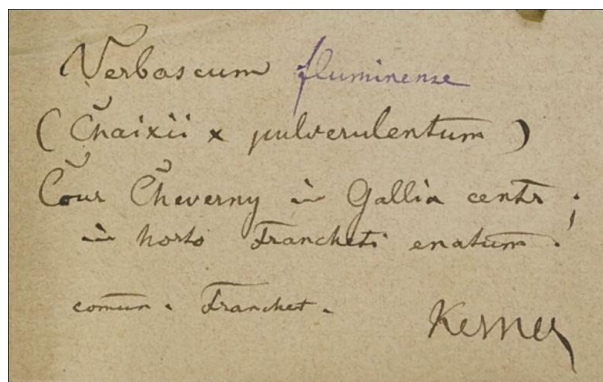 Verbascum fluminense
(Chaixii x pulverulentum)
Cour Cheverny in Gallia centr.;
in horto Francheti enatum.
comun. Franchet.
Kerner